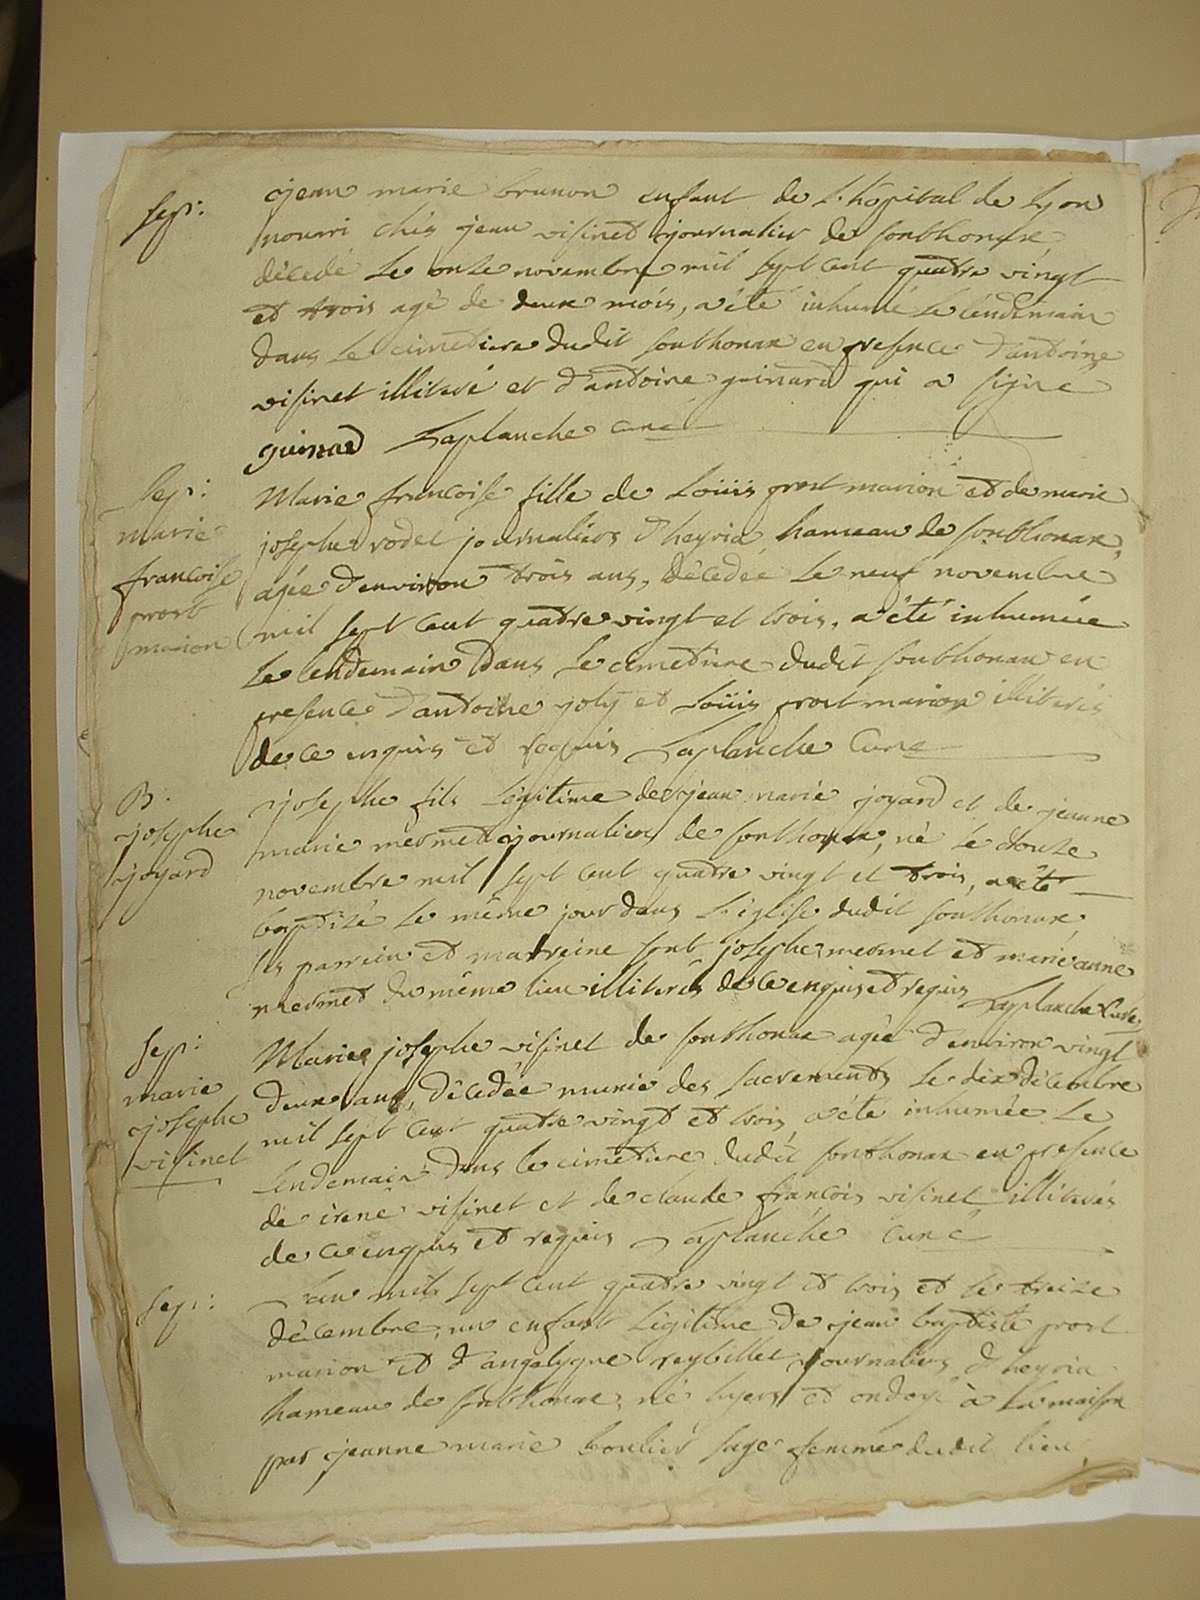 sep:
jean marie brunon enfant de l'hopital de Lyon
nourri chés jean visinet journalier de sonthonax
décedé le onze novembre mil sept cent quatre vingt
et trois agé de deux mois, a été inhumé le lendemain
dans le cimetiere dudit sonthonax en presence d'antoine
visinet illiteré et d'antoine guinard qui a signé
guinard Laplanche curé
sep:
marie
francoise
prost
marion
Marie francoise fille de Loüis prost marion et de marie
josephe rodet journaliers d'heyria hameau de sonthonax,
agée d'environ trois ans, décedée le neuf novembre
mil sept cent quatre vingt et trois, a été inhumée
le lendemain dans le cimetiere dudit sonthonax en
presence d'antoine joly et Loüis prost marion illiterés
de ce enquis et requis Laplanche curé
B.
josephe
joyard
josephe fils légitime de jean marie joyard et de jeanne
marie mermet journaliers de sonthonax, né le douze
novembre mil sept cent quatre vingt et trois, a été
baptizé le même jour dans l'église dudit sonthonax,
ses parrein et marreine sont josephe mermet et marie anne
mermet du même lieu illiterés de ce enquis et requis Laplanche curé.
sep:
marie
josephe
visinet
Marie josephe visinet de sonthonax agée d'environ vingt
deux ans, décedée munie des sacrements le dix décembre
mil sept cent quatre vingt et trois a été inhumée le
lendemain dans le cimetiere dudit sonthonax en presence
de irené visinet et de claude francois visinet illiterés
de ce enquis et requis Laplanche curé
sep:
L'an mil sept cent quatre vingt et trois et le treize
décembre, un enfant légitime de jean baptiste prost
marion et d'angelique reybillet journaliers d'heyria
hameau de sonthonax, né hyers et ondoyé à la maison
par jeanne marie boulier sage femme dudit lieu